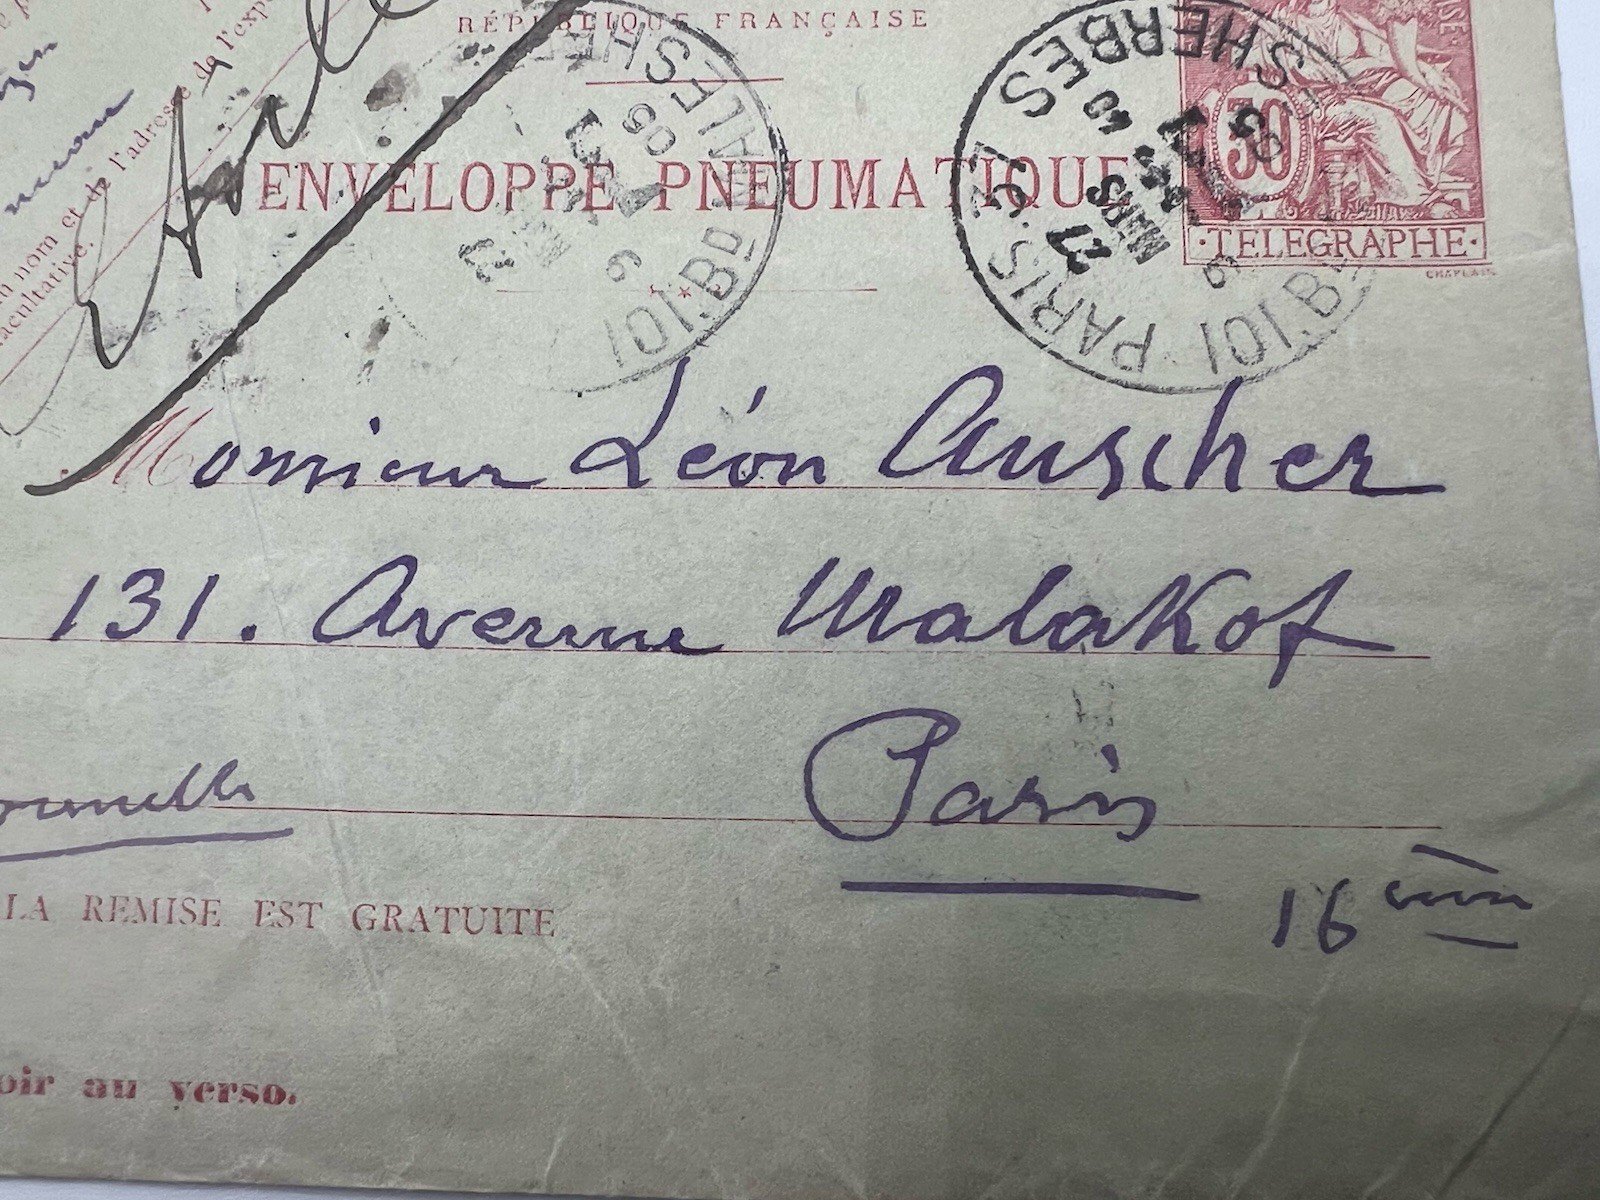 RÉPUBLIQUE FRANÇAISE
ENVELOPPE PNEUMATIQUE
30
TELEGRAPHE
CHAPLAIN
PARIS
101. BD MALESHERBES
27
MARS
03
101. BD MALESHERBES
03
de l'adresse de l'expé
nom et
facultative.
Monsieur Léon Auscher
131. Avenue Malakof
Paris
16ème
LA REMISE EST GRATUITE
oir au verso.